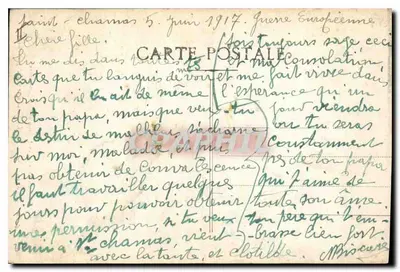 Saint-chamas 5 juin 1917. Guerre Européenne
Chère fille.
CARTE POSTALE
Tu me dis dans toutes tes
cartes que tu languis de voir
crois qu'il en ait de même
de ton papa, mais que veux tu
le destin de malheur s'acharne
sur moi, malade, et puis
pas obtenir de convalescence
il faut travailler quelques
jours pour pouvoir obtenir
une permission, si tu veux
venir à St chamas, vient
avec ta tante, et clotilde.
sois toujours sage ceci
et ma consolation
et me fait vivre dans
l'espérance qu'un
jour viendra
ou tu seras
constamment
près de ton papa
qui t'aime de
toute son âme.
ton père qui t'em-
brasse bien fort